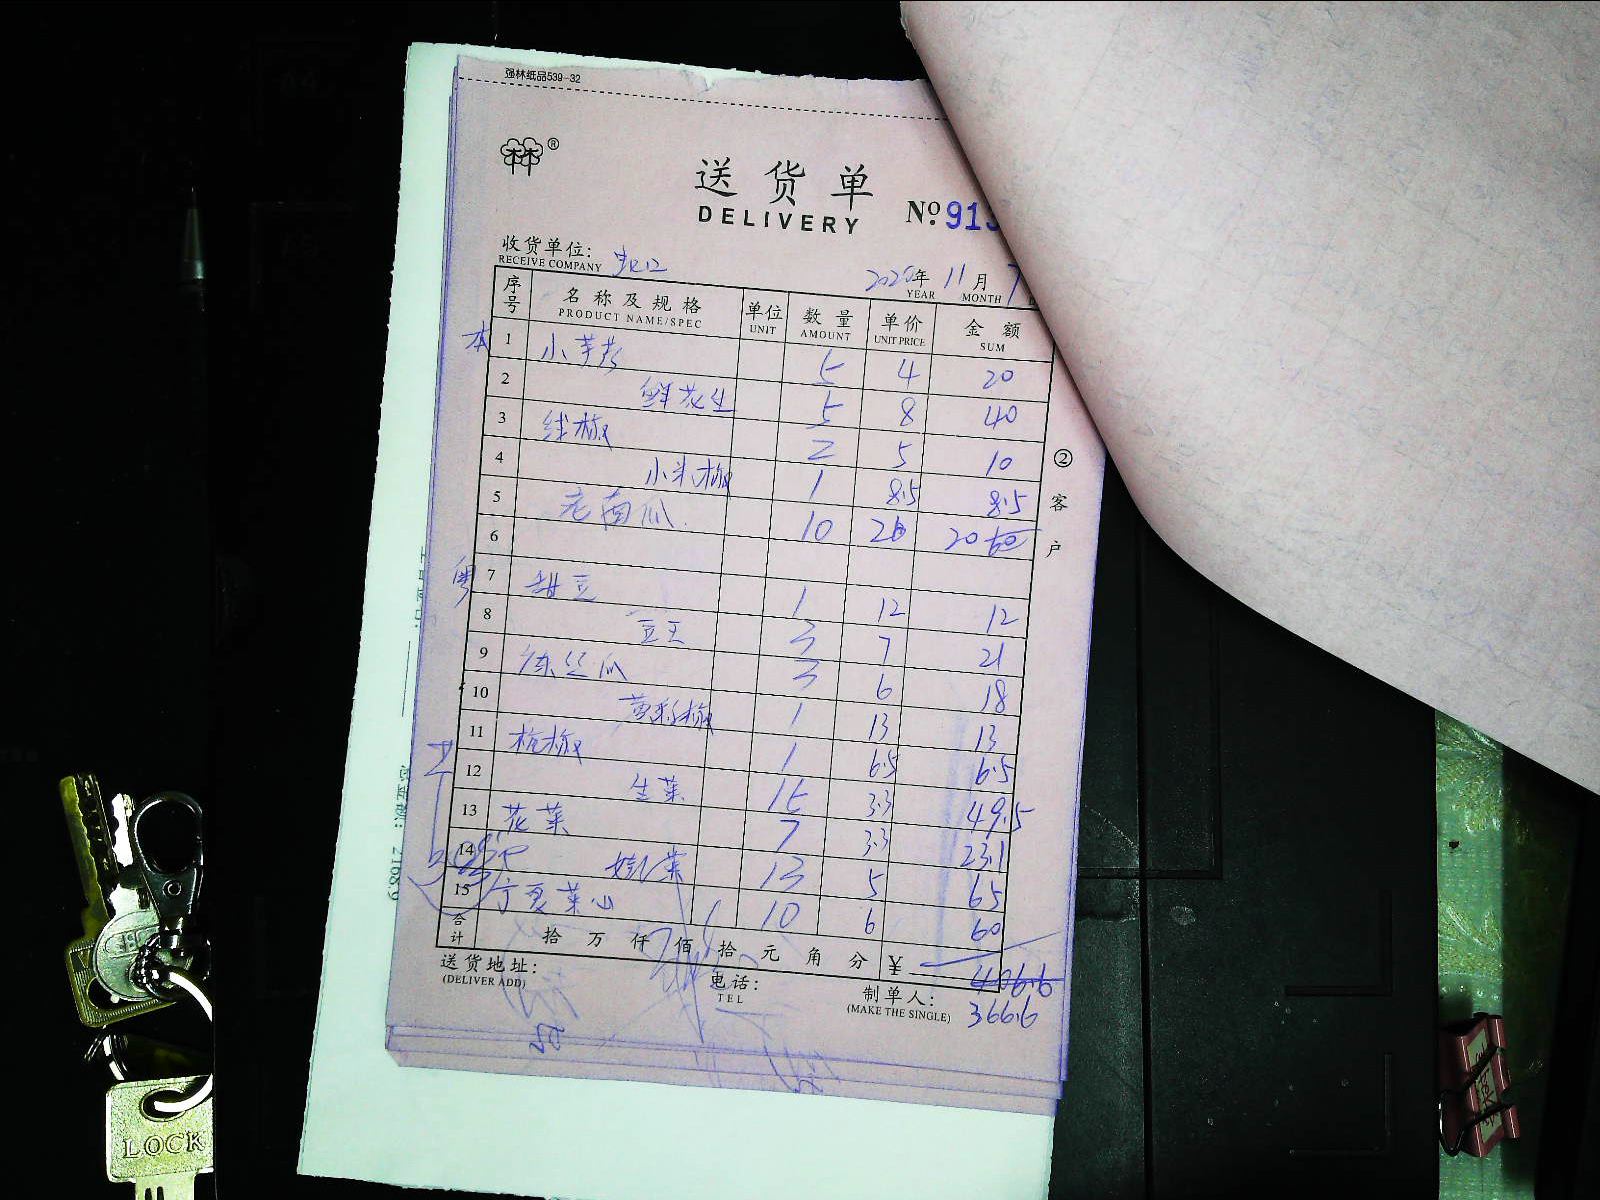 强林纸品539-32
林®
送货单
DELIVERY
№ 913
收货单位: 蛇口
RECEIVE COMPANY
2020年 11月 7
YEAR MONTH
序号 名称及规格 单位 数量 单价 金额
PRODUCT NAME/SPEC UNIT AMOUNT UNIT PRICE SUM
本 1 小芋艿 5 4 20
2 鲜花生 5 8 40
3 线椒 2 5 10
4 小米椒 1 8.5 8.5
5 老南瓜 10 2 20
6
粤 7 甜豆 1 12 12
8 豆王 3 7 21
9 丝瓜 3 6 18
10 椒 1 13 13
11 杭椒 1 6.5 6.5
12 生菜 15 3.3 49.5
13 花菜 7 3.3 23.1
14 娃菜 13 5 65
15 宁夏菜心 10 6 60
合计 拾 万 仟 佰 拾 元 角 分 ¥ 406.6
366.6
送货地址:
(DELIVER ADD)
电话:
TEL
制单人:
(MAKE THE SINGLE)
②客户
LOCK